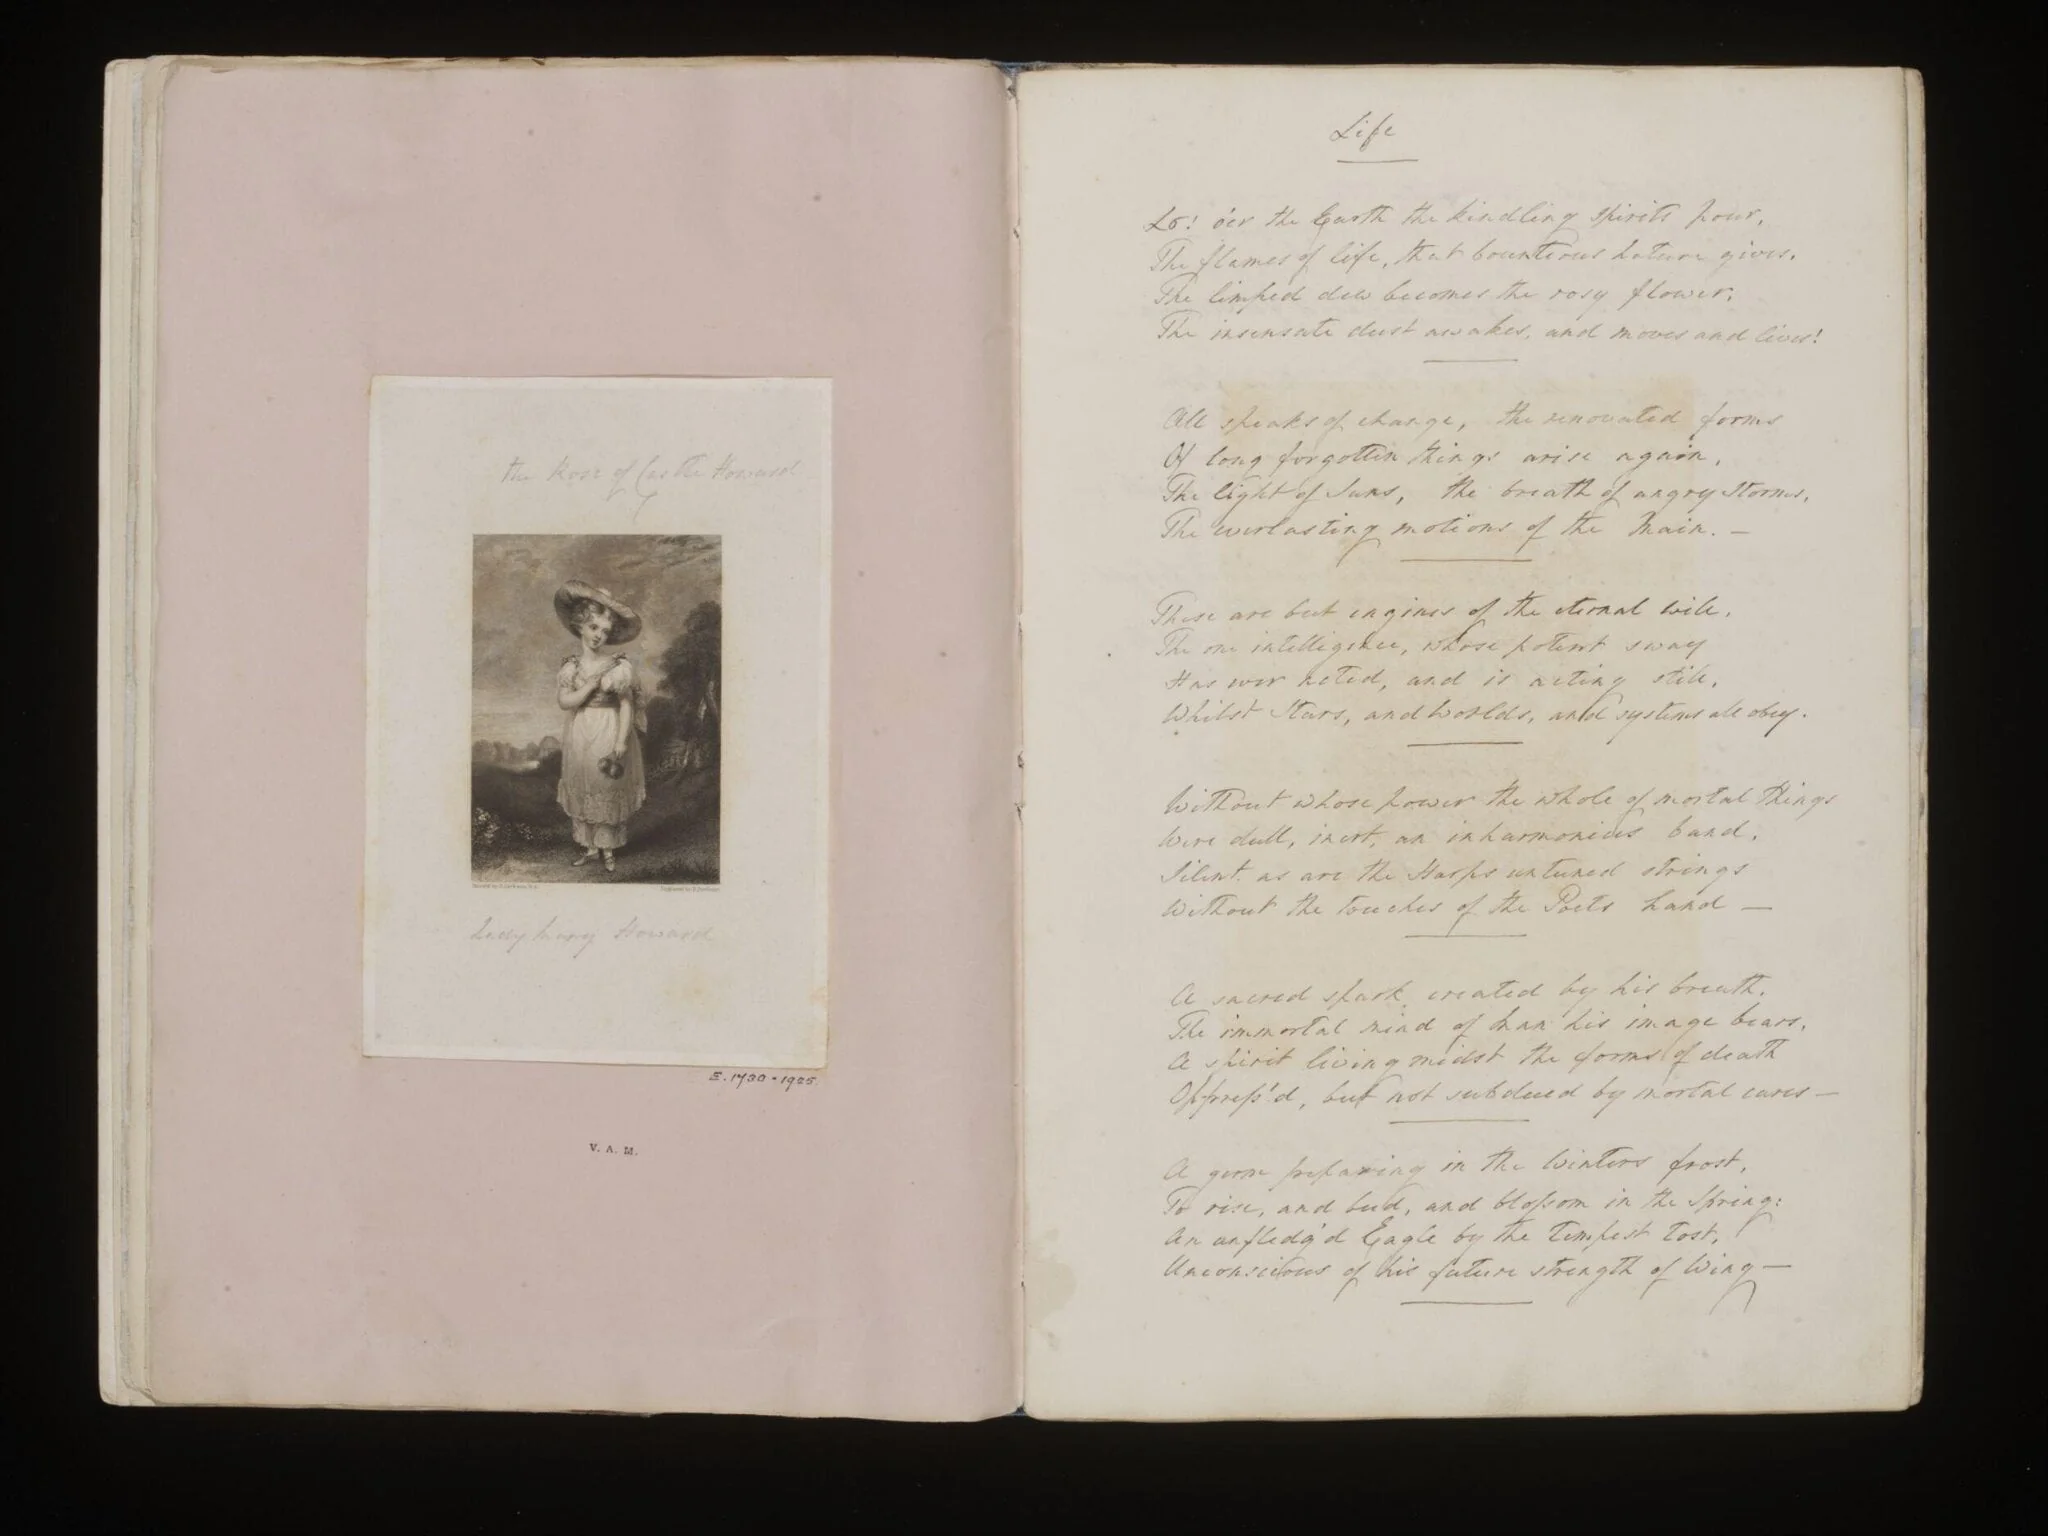 The Rose of Castle Howard
Painted by J. Jackson R.A.
Lady Mary Howard
E.1730-1925.
V. A. M.
Life
Lo! o'er the Earth the kindling spirits pour,
The flames of life, that bounteous nature gives,
The limped dew becomes the rosy flower,
The insensate dust awakes, and moves and lives!
All speaks of change, the renovated forms
Of long forgotten things arise again,
The light of Suns, the breath of angry Storms,
The everlasting motions of the Main. —
These are but engines of the eternal will,
The one intelligence, whose potent sway
Has ever acted, and is acting still,
Whilst Stars, and Worlds, and systems all obey.
Without whose power the whole of mortal things
Were dull, inert, an inharmonious band,
Silent. as are the Harps untuned strings
Without the touches of the Poets hand —
A sacred spark created by his breath,
The immortal mind of Man his image bears,
A spirit living midst the forms of death
Oppress'd, but not subdued by mortal cares —
A germ preparing in the Winters frost,
To rise, and bud, and blossom in the Spring:
An unfledg'd Eagle by the tempest tost,
Unconscious of his future strength of Wing —